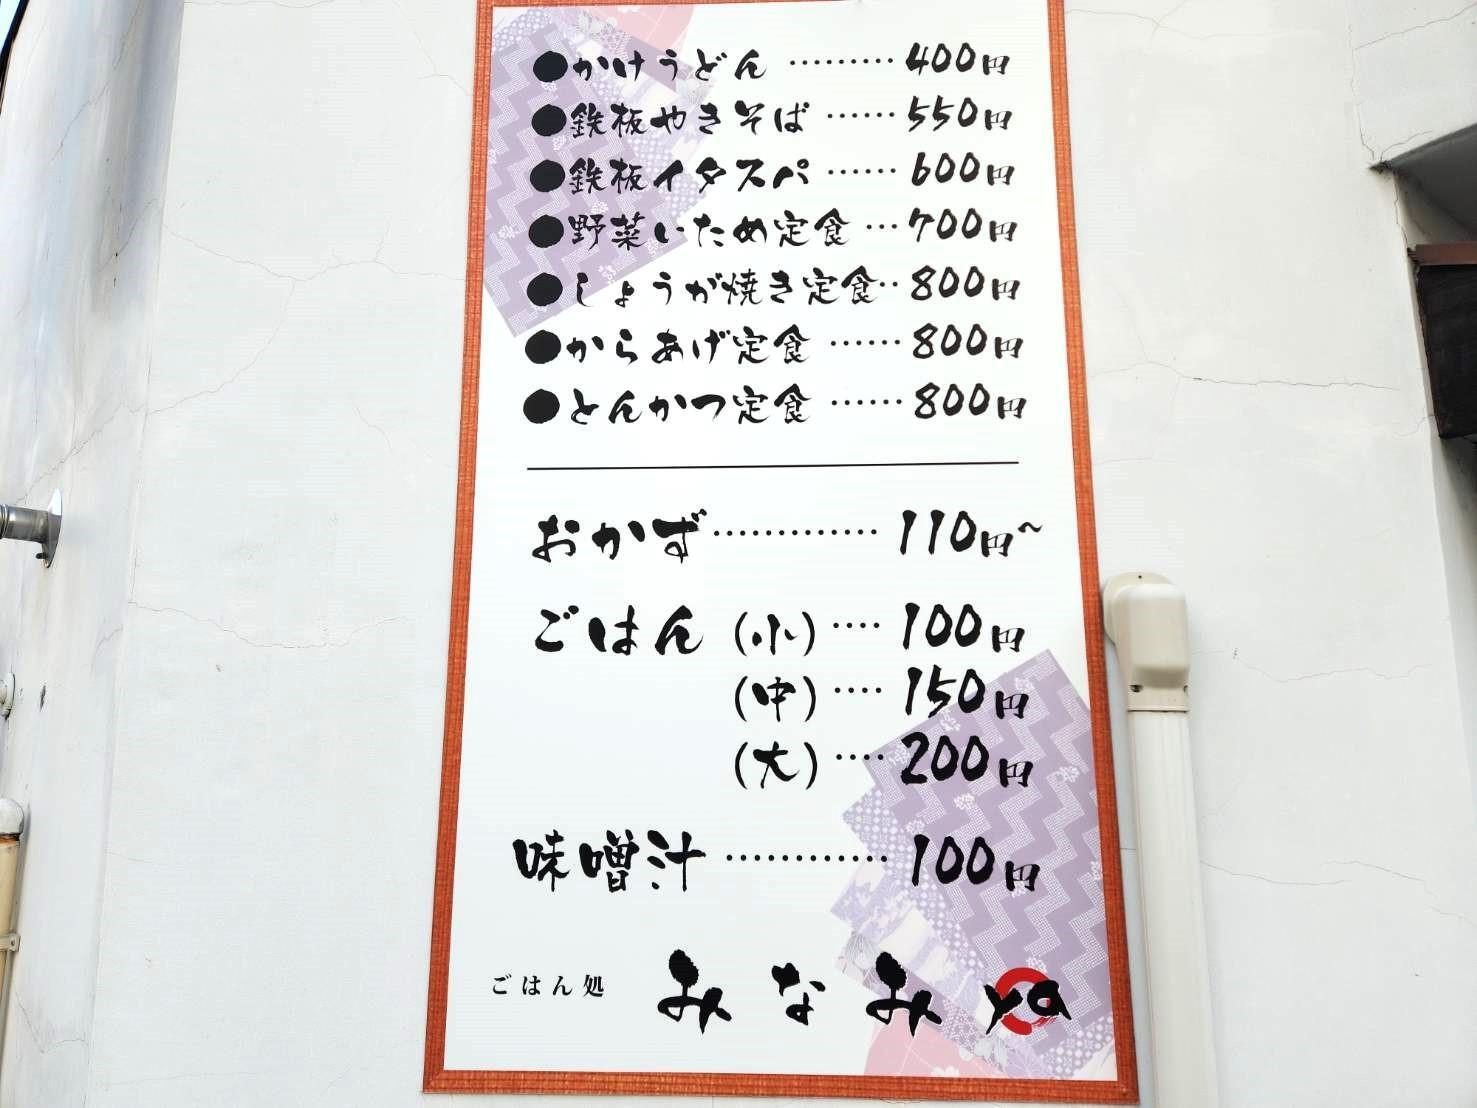 ●かけうどん ……… 400円
●鉄板やきそば …… 550円
●鉄板イタスパ …… 600円
●野菜いため定食 … 700円
●しょうが焼き定食‥ 800円
●からあげ定食 …… 800円
●とんかつ定食 …… 800円
おかず………… 110円~
ごはん (小) ‥‥ 100円
(中) ‥‥ 150円
(大) ‥‥ 200円
味噌汁 ………… 100円
ごはん処 みなみya